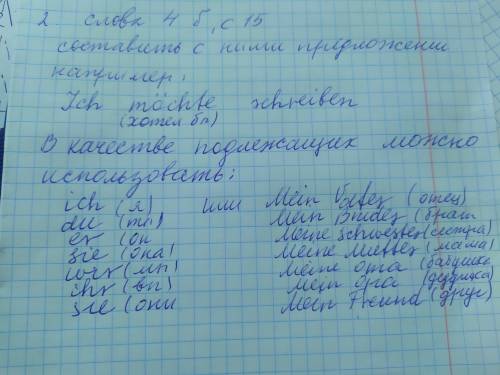 2 слова 4 б, с 15
составить с ними предложении
например:
Ich möchte schreiben
(хотел бы)
В качестве подлежащих можно
использовать:
ich (я) или Mein Vater (отец)
du (ты) Mein Bruder (брат
er (он Meine Schwester (сестра)
sie (она) Meine Mutter (мама)
wir (мы) Meine Oma (бабушка
ihr (вы) Mein Opa (дедушка)
sie (они Mein Freund (друг)